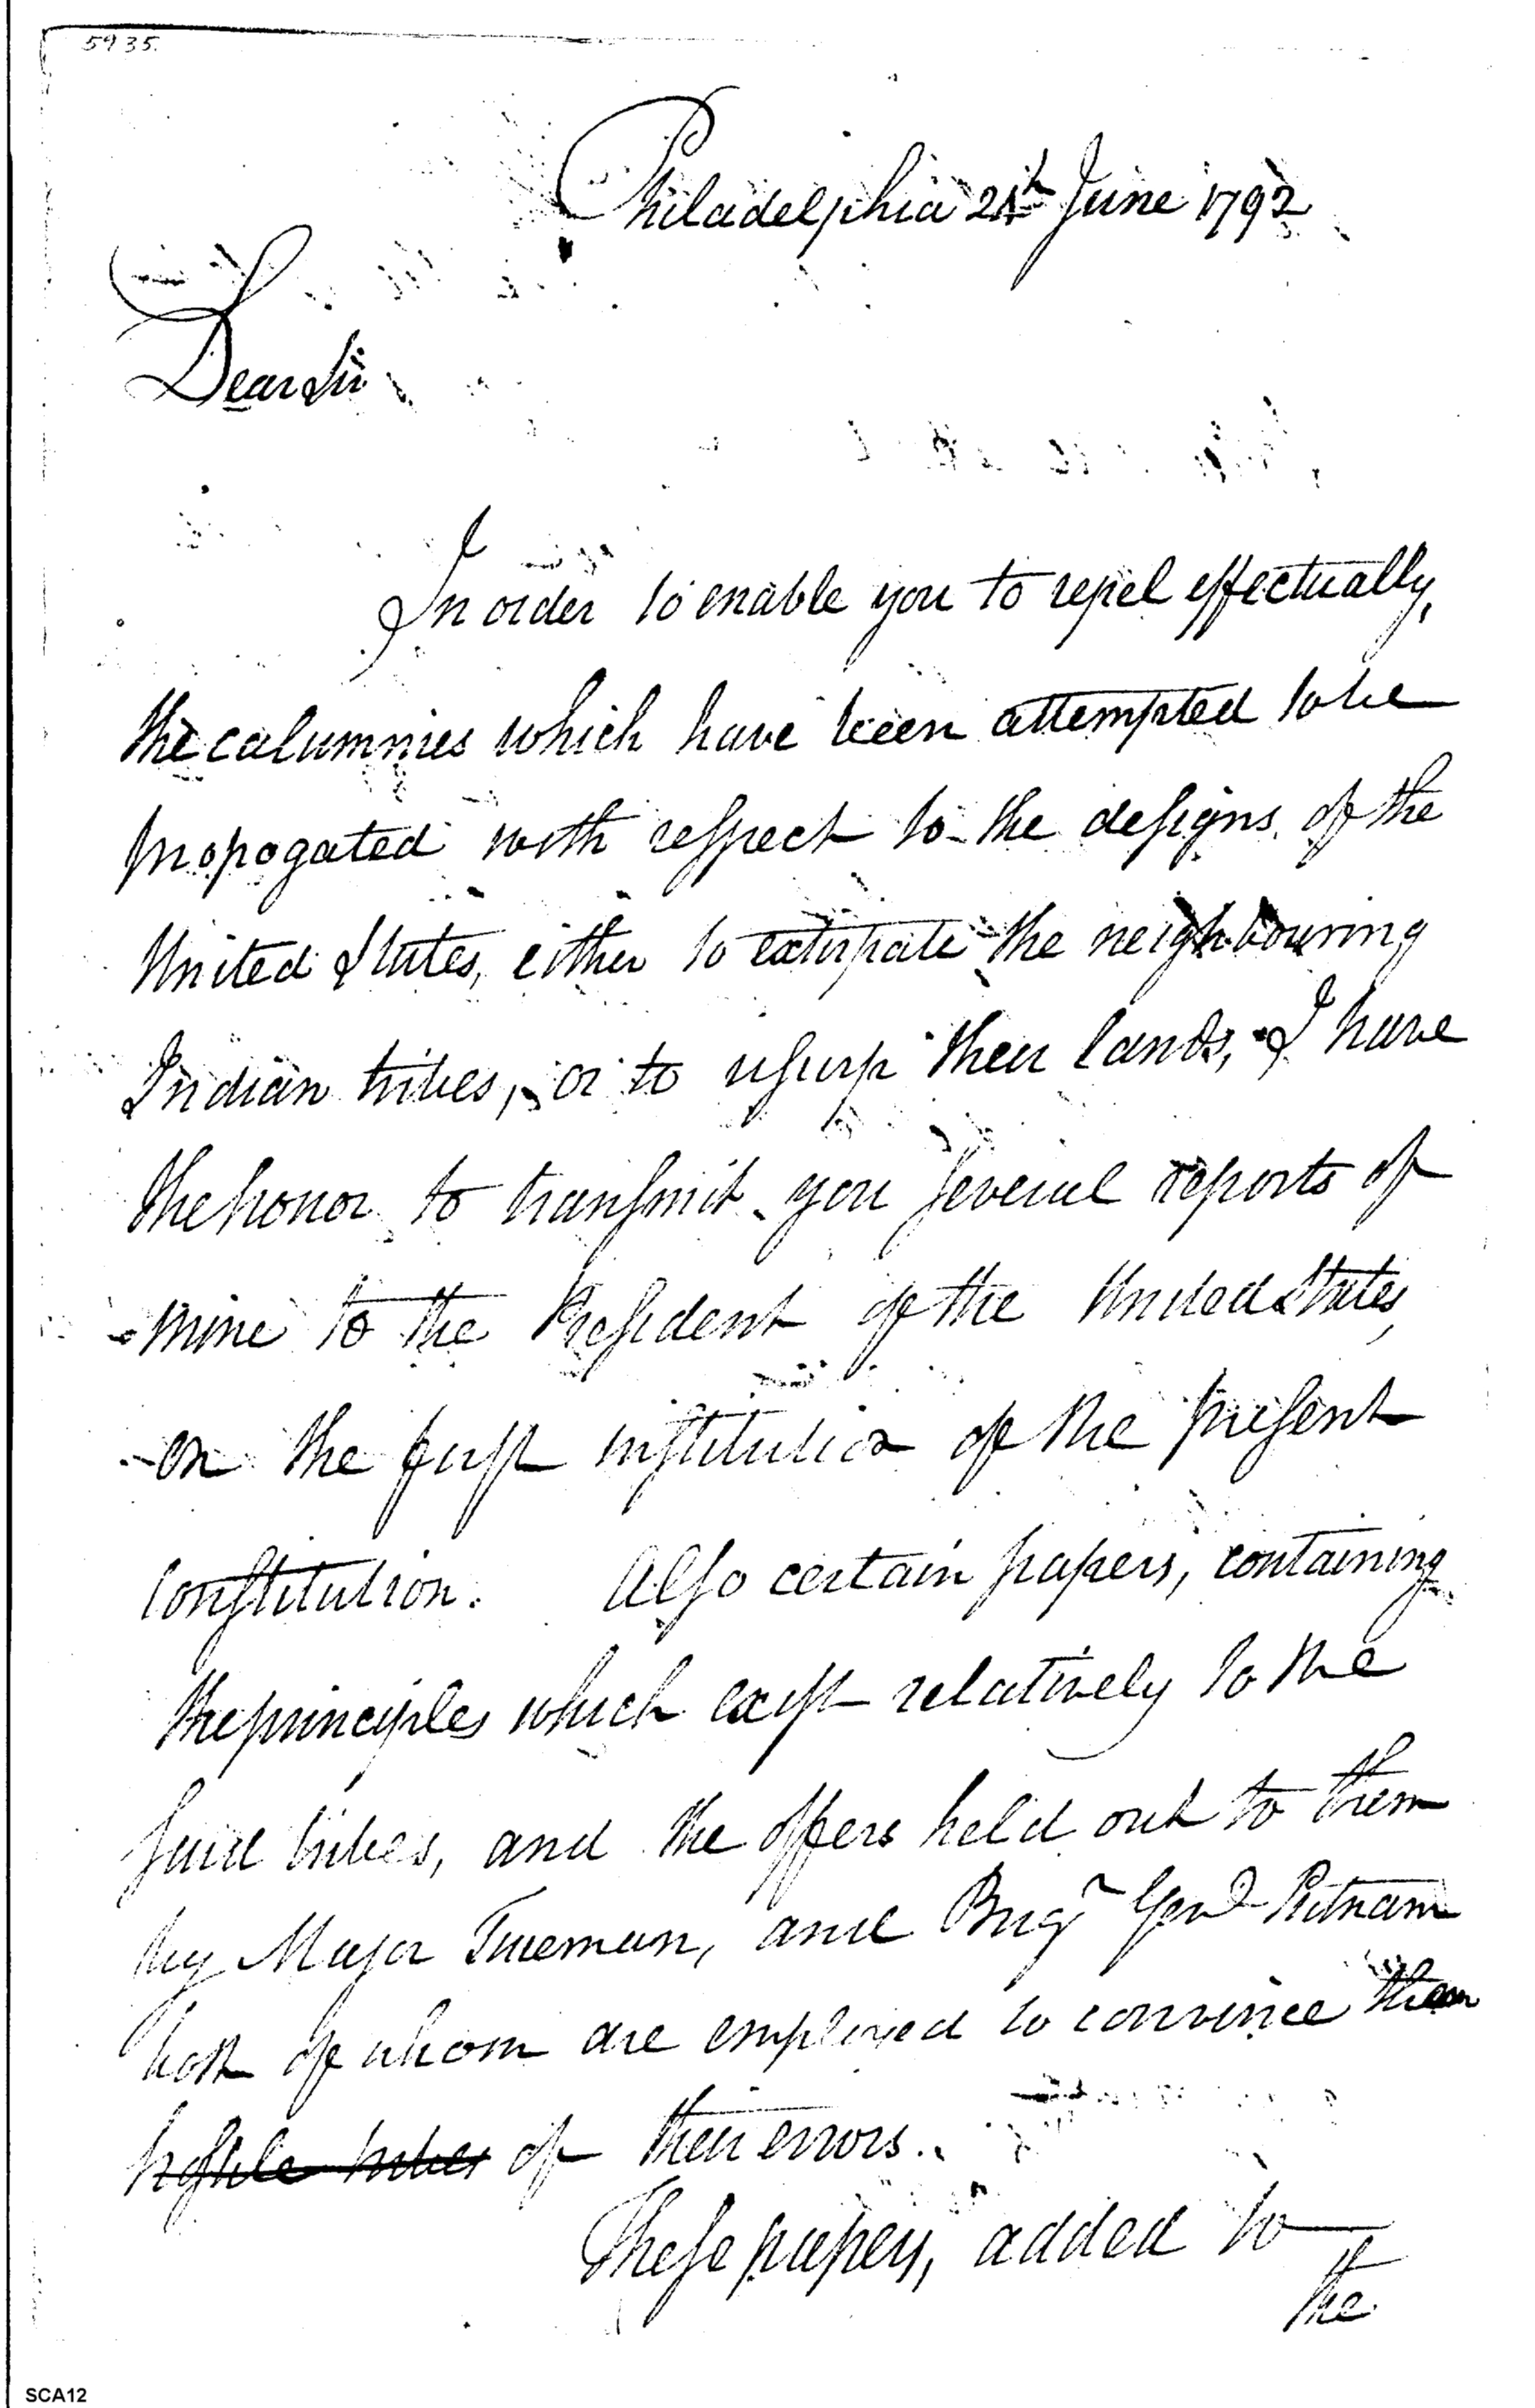 5935.
Philadelphia 24th June 1792
Dear Sir
In order to enable you to repel effectually,
the calumnies which have been attempted to be
propogated with respect to the designs of the
United States, either to extirpate the neighbouring
Indian tribes, or to usurp their lands, I have
the honor to transmit you several reports of
mine to the President of the United States,
on the first institution of the present
constitution. Also certain papers, containing
the principles which exist relatively to the
said tribes, and the offers held out to them
by Major Trueman, and Brigr Genl Putnam
both of whom are employed to convince them
hostile tribes of their errors.
These papers, added to
the
SCA12